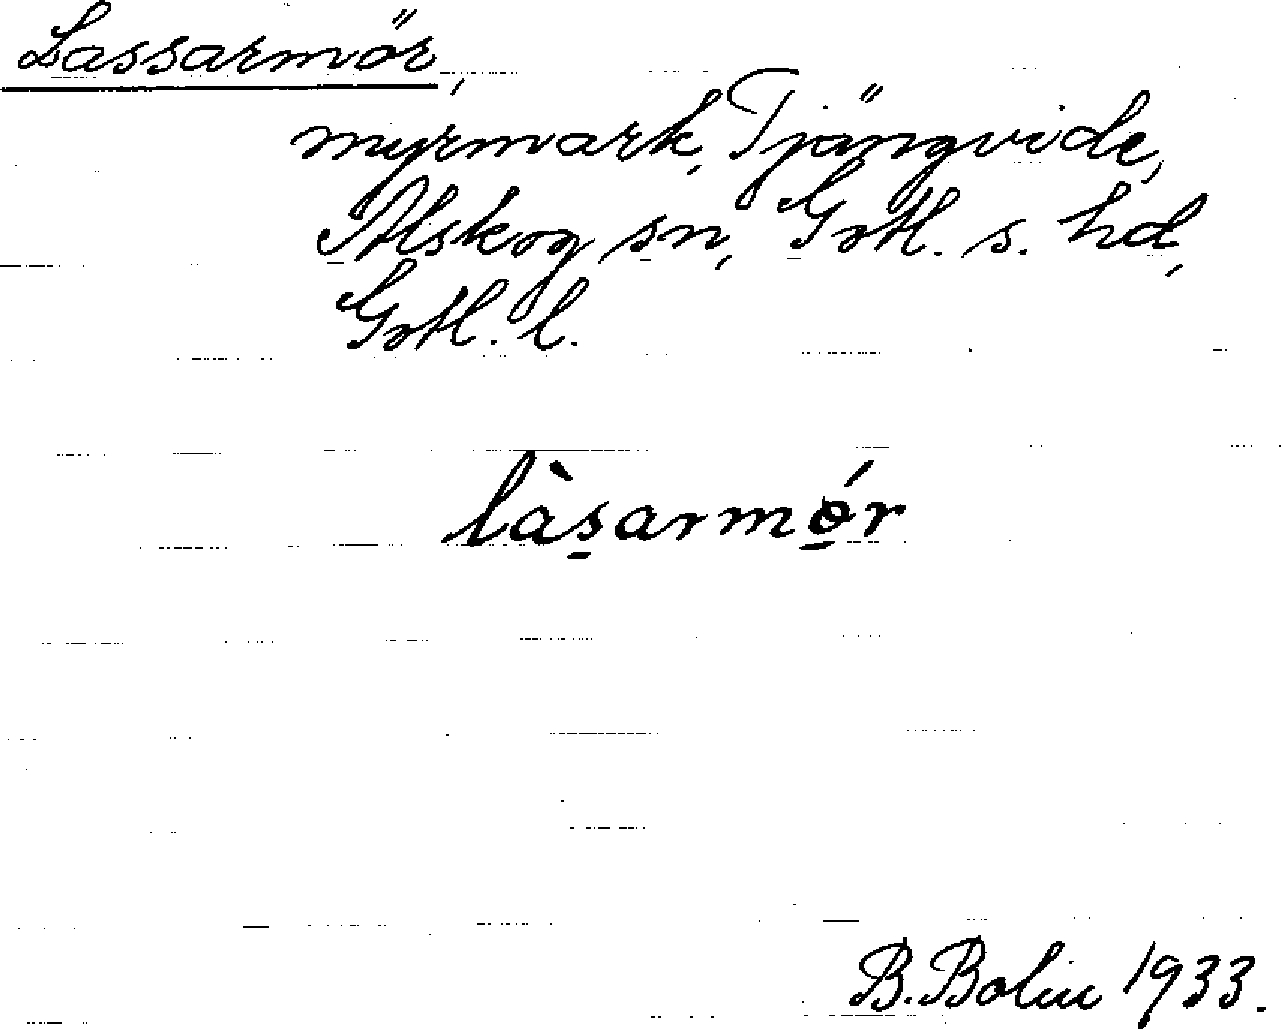 Lassarmör,
myrmark, Tjängvide,
Alskog sn, Gotl. s. hd,
Gotl. l.
làs̱armǿ̱r
B. Bolin 1933.